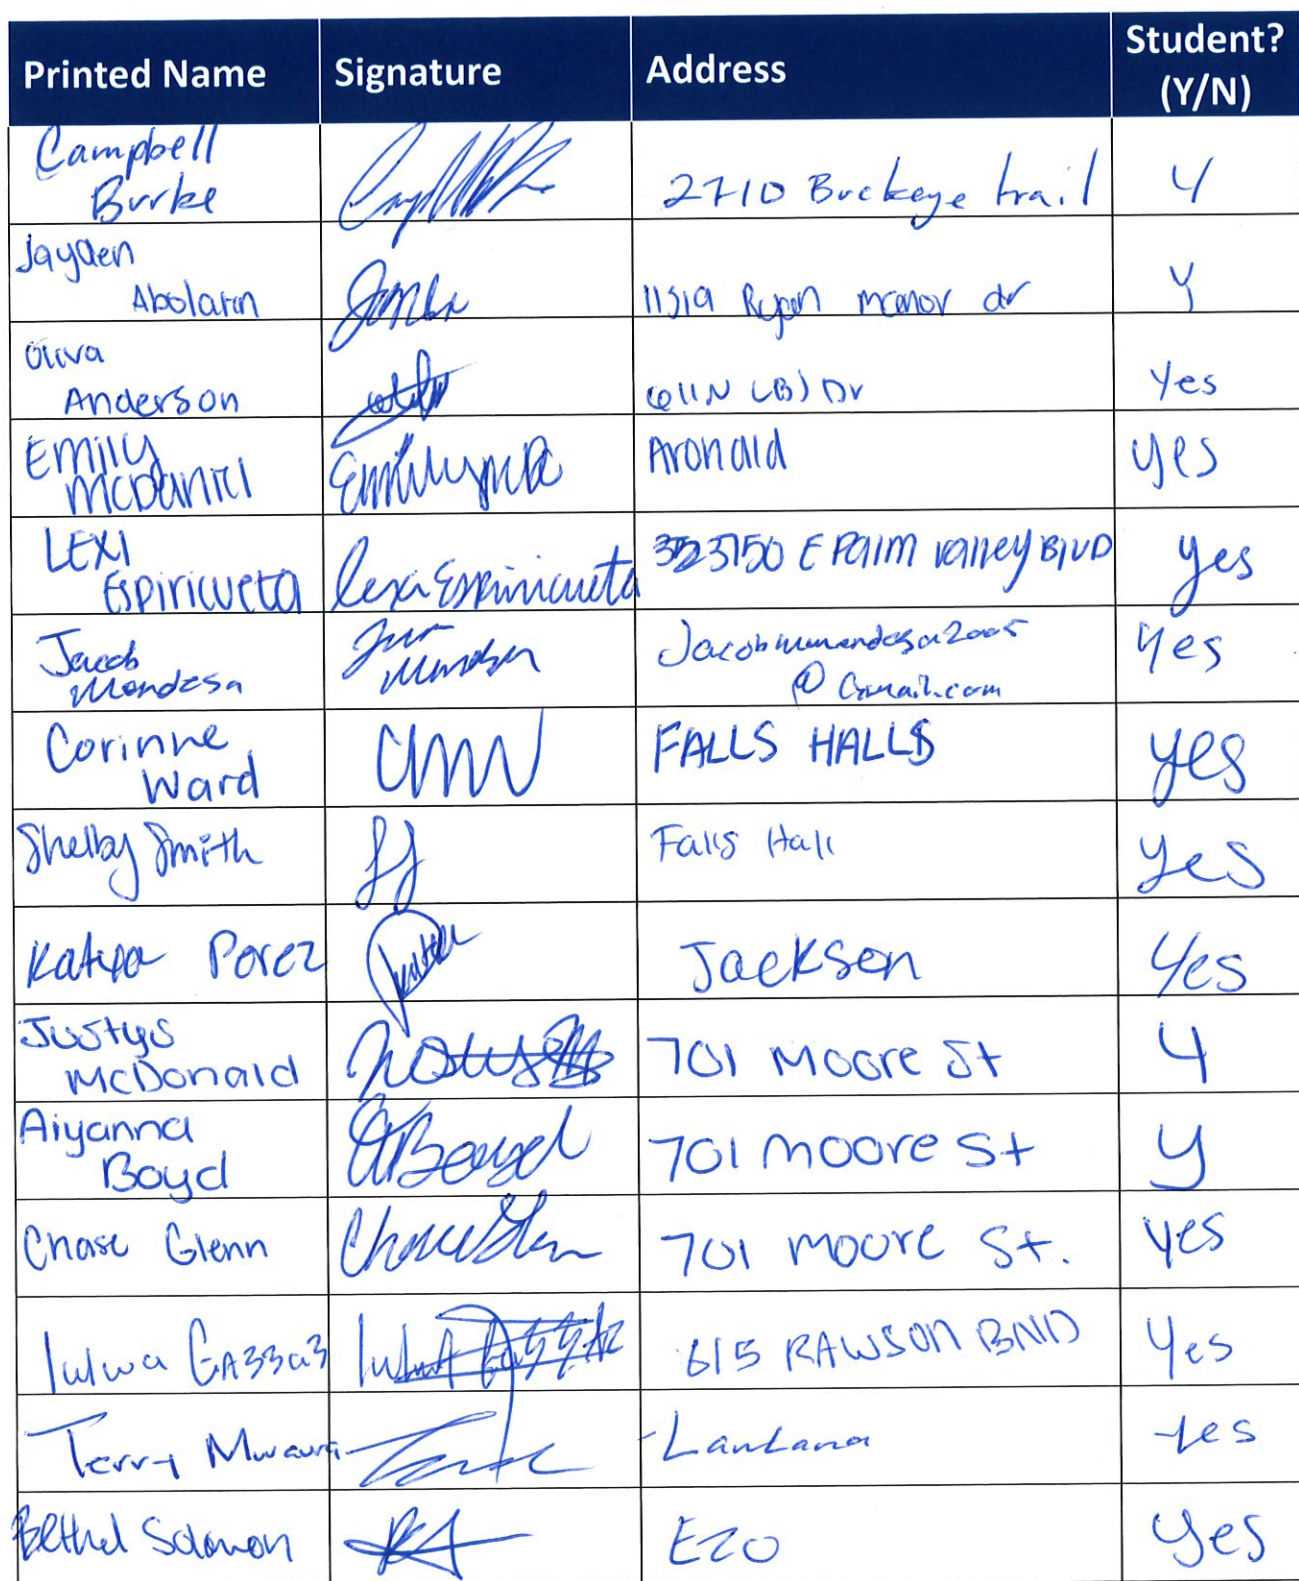 Printed Name Signature Address Student? (Y/N)
Campbell
Burke 2710 Buckeye trail Y
Jayden
Abolarin 11519 Ryan manor dr Y
Oliva
Anderson 611 N LBJ Dr Yes
Emily
McDaniel Aronald yes
LEXI
Espiricueta Lexi Espiricueta 3150 E Palm Valley BLVD yes
Jacob
Mendesa Yes
@ Gmail.com
Corinne
Ward CMW FALLS HALLS yes
Shelby Smith SS Falls Hall yes
Perez Jackson Yes
Justys
McDonald 701 Moore St Y
Aiyanna
Boyd ABoyd 701 moore St y
Chase Glenn Chase Glenn 701 moore St. yes
lulwa GA33a3 615 RAWSON Yes
Terry Mwaura Lantana Yes
Bethel Solomon yes